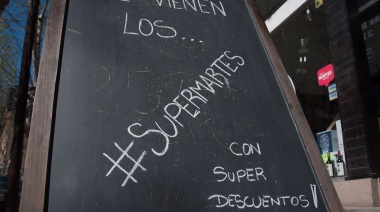 VIENEN
LOS...
#SUPERMARTES
CON
SUPER
DESCUENTOS!